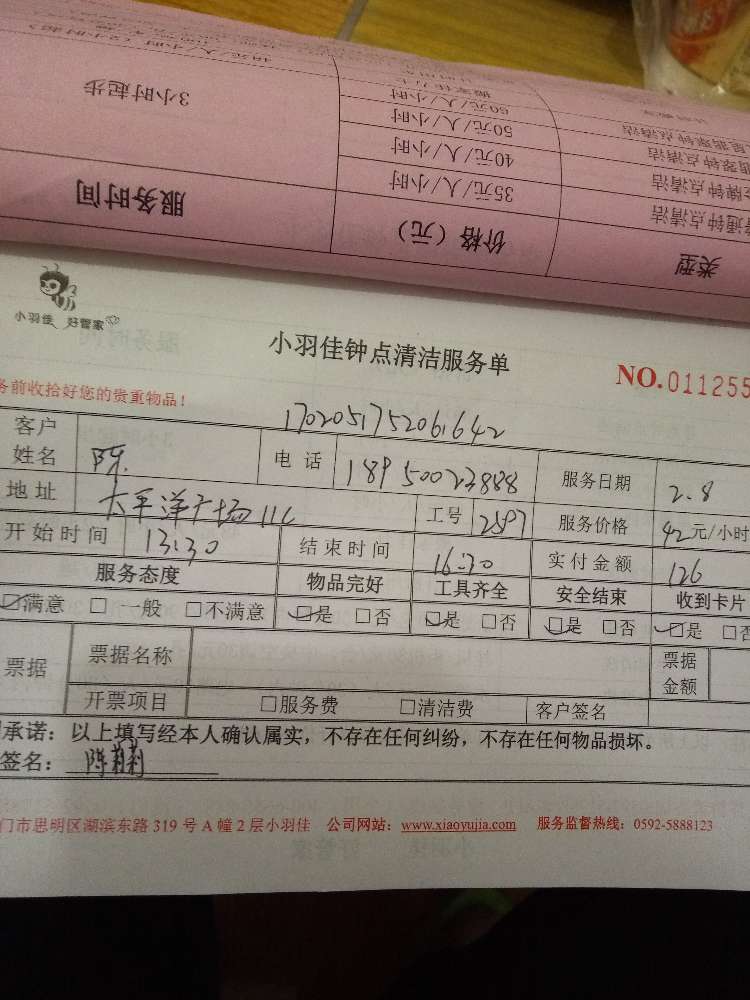 48元/人/小时（2小时起）
60元/人/小时
50元/人/小时
40元/人/小时
35元/人/小时
3小时起步
钟点清洁
钟点清洁
钟点清洁
通钟点清洁
服务时间 价格（元） 类型
小羽佳 好管家
小羽佳钟点清洁服务单
NO.011255
务前收拾好您的贵重物品！
1702051752061642
客户姓名 陈. 电话 18950023888 服务日期 2.8
地址 太平洋广场11C 工号 2597 服务价格 42元/小时
开始时间 13:30 结束时间 16:30 实付金额 126
服务态度 物品完好 工具齐全 安全结束 收到卡片
满意 □一般 □不满意 是 □否 是 □否 是 □否 是 □否
票据 票据名称 票据金额
开票项目 □服务费 □清洁费 客户签名
承诺：以上填写经本人确认属实，不存在任何纠纷，不存在任何物品损坏。
签名：陈莉莉
门市思明区湖滨东路319号A幢2层小羽佳 公司网站：www.xiaoyujia.com 服务监督热线：0592-5888123